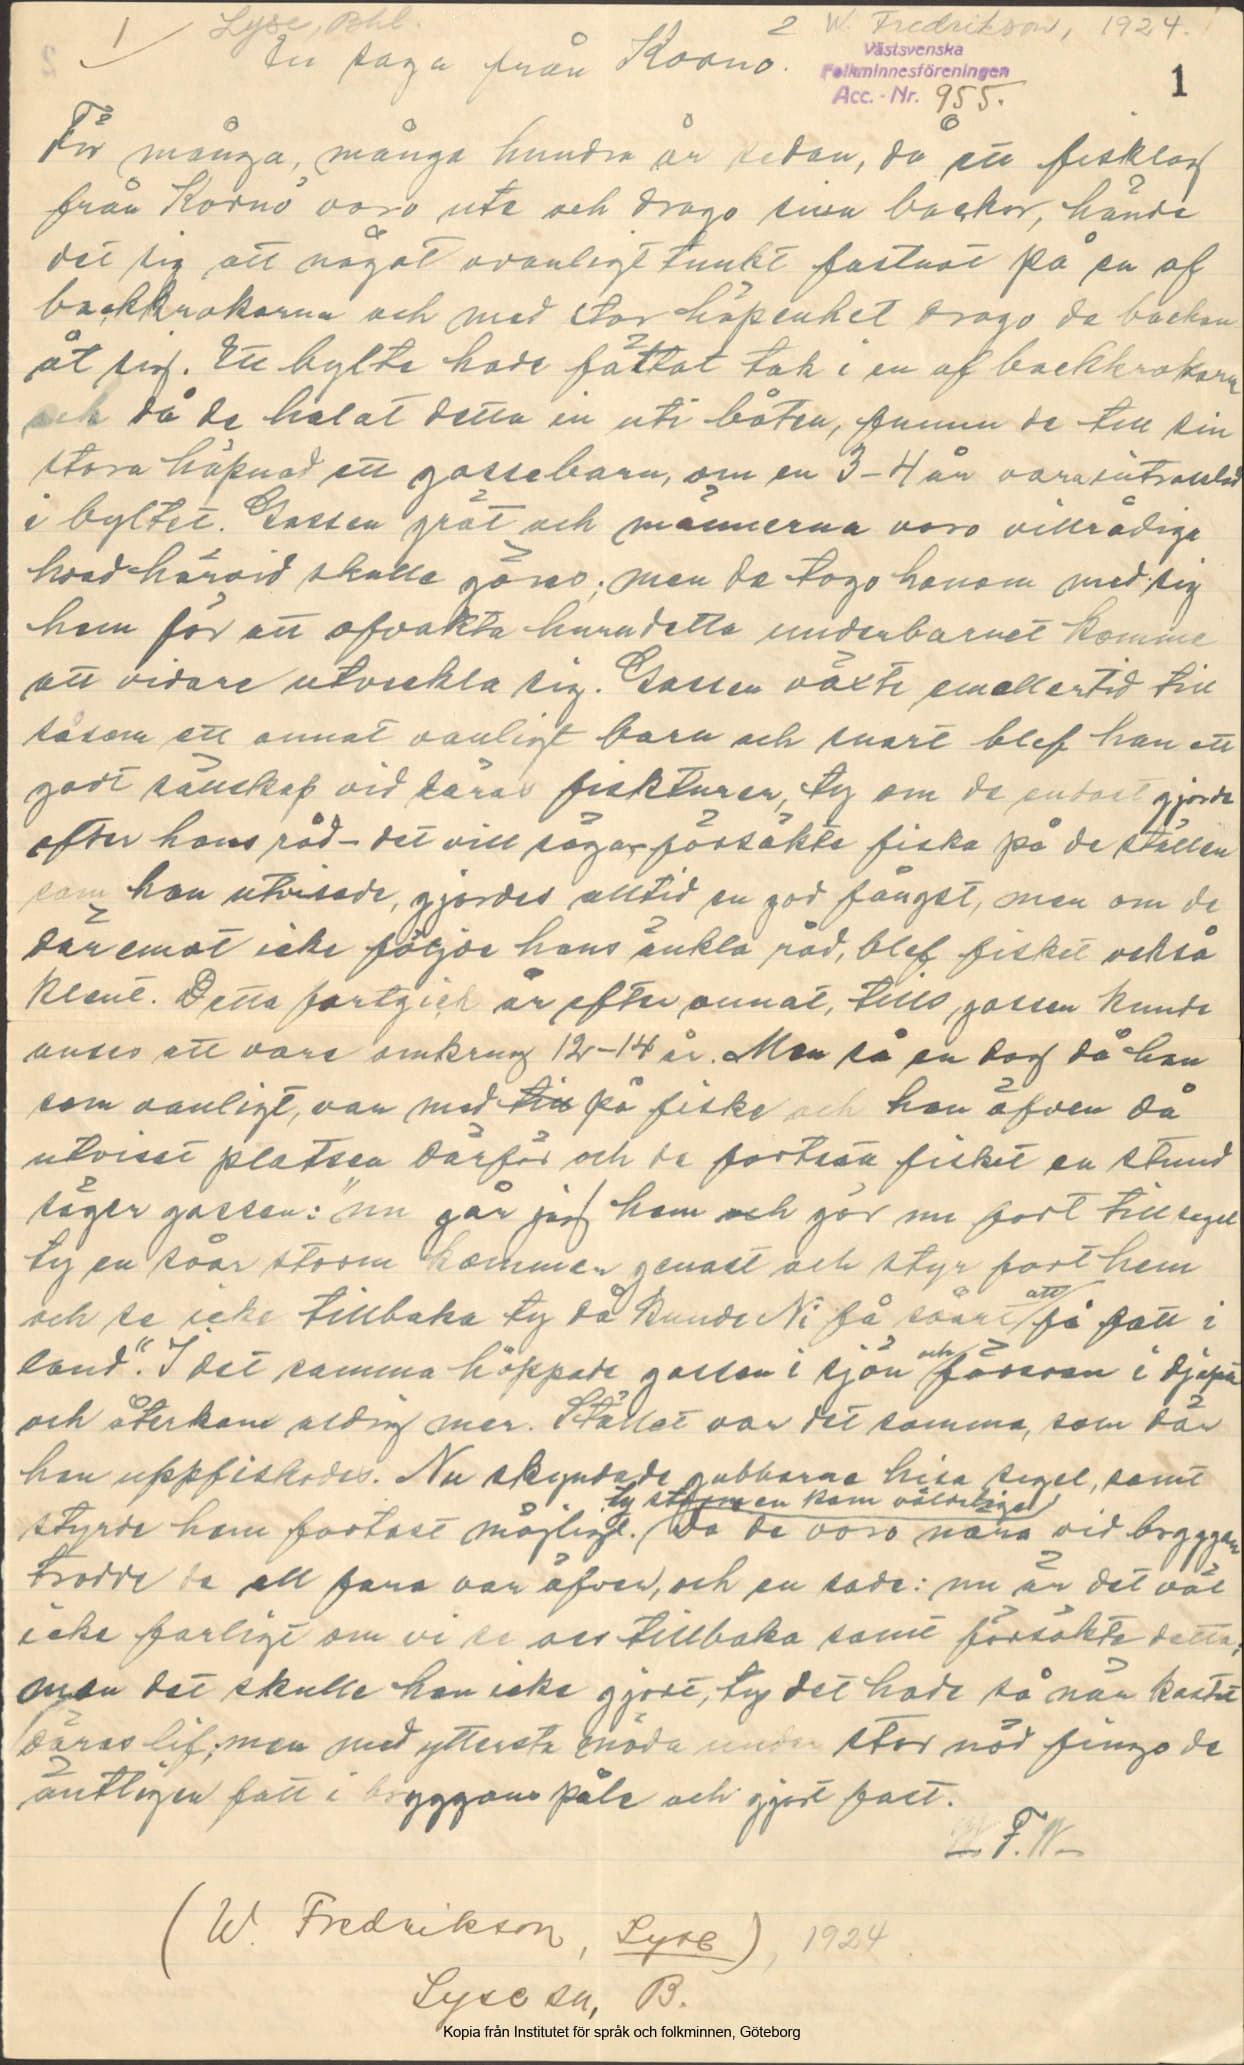 1 Lyse, Bhl. 2 W. Fredrikson, 1924.
En saga från Kornö.
Västsvenska
Folkminnesföreningen
Acc. - Nr. 955.
1
För många, många hundra år sedan, då ett fisklag
från Kornö voro ute och drogo sina backor, hände
det sig att något ovanligt tunkt fastnat på en af
backkrokarna och med stor häpenhet drogo de backan
åt sig. Ett bylte hade fattat tak i en af backkrokarna
och då de halat detta in uti båten, funno de till sin
stora häpnad ett gossebarn, om en 3-4 år vara intrasslad
i byltet. Gossen grät och männerna voro villrådiga
hvad härvid skulle göras; men de togo honom med sig
hem för att afvakta huru detta underbarnet komme
att vidare utveckla sig. Gossen växte emellertid till
såsom ett annat vanligt barn och snart blef han ett
godt sällskap vid däras fiskturer, ty om de endast gjorde
efter hans råd - det vill säga, försökte fiska på de ställen
som han utvisade, gjordes alltid en god fångst, men om de
däremot icke följde hans änkla råd, blef fisket också
klent. Detta fortgick år efter annat, tills gossen kunde
anses att vara omkring 12-14 år. Men så en dag då han
som vanligt, var med till på fiske och han äfven då
utvisat platsen därför och de fortsatt fisket en stund
säger gossen: "nu går jag hem och gör nu fort till segel
ty en svår storm kommer genast och styr fort hem
och se icke tillbaka ty då kunde Ni få svårt att få fatt i
land". I det samma hoppade gossen i sjön och försvan i djupet
och återkom aldrig mer. Stället var det samma, som där
han uppfiskades. Nu skyndade gubbarna hisa segel, samt
styrde hem fortast möjligt. ty stormen kom våldsliga Då de voro nära vid bryggan
trodde de all fara var äfver, och en sade: nu är det väl
icke farligt om vi se oss tillbaka samt försökte detta;
men det skulle han icke gjort, ty det hade så när kostat
däras lif; men med yttersta möda under stor nöd fingo de
äntligen fatt i bryggans påle och gjort fast.
F. W.
(W. Fredrikson, Lyse), 1924.
Lyse sn, B.
Kopia från Institutet för språk och folkminnen, Göteborg